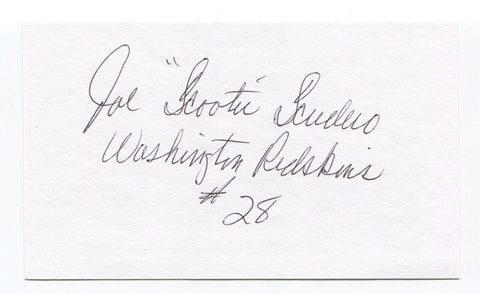 Joe "Scooter" Scudero
Washington Redskins
# 28